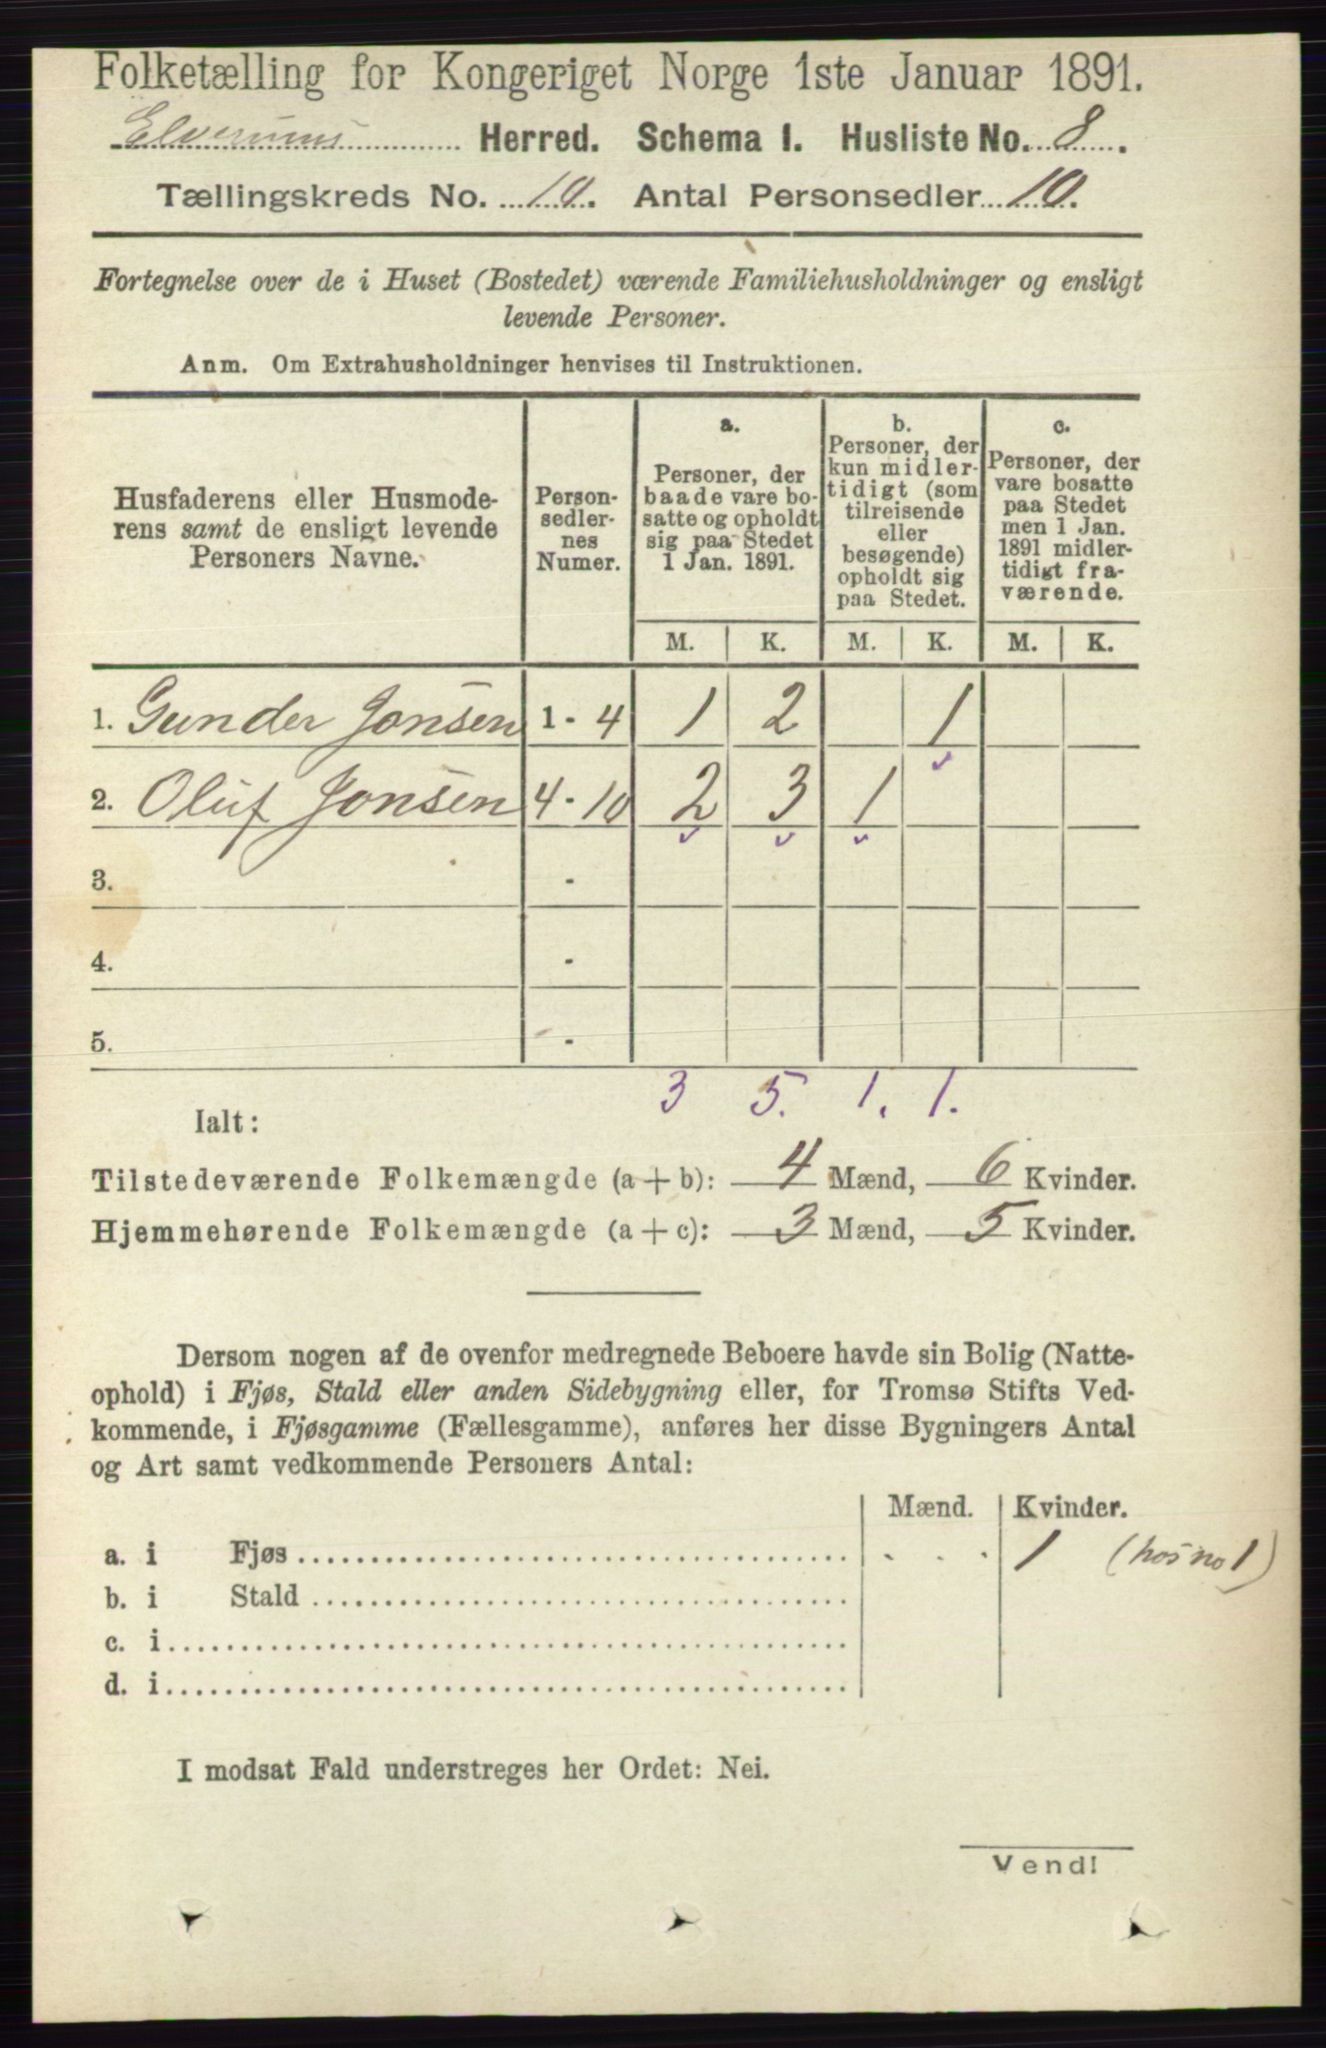 Folketælling for Kongeriget Norge 1ste Januar 1891.
Elverums Herred. Schema I. Husliste No. 8.
Tællingskreds No. 10. Antal Personsedler 10.
Fortegnelse over de i Huset (Bostedet) værende Familiehusholdninger og ensligt
levende Personer.
Anm. Om Extrahusholdninger henvises til Instruktionen.
Husfaderens eller Husmode-
rens samt de ensligt levende
Personers Navne.
Person-
sedler-
nes
Numer.
a.
Personer, der
baade vare bo-
satte og opholdt
sig paa Stedet
1 Jan. 1891.
b.
Personer, der
kun midler-
tidigt (som
tilreisende
eller
besøgende)
opholdt sig
paa Stedet.
c.
Personer, der
vare bosatte
paa Stedet
men 1 Jan.
1891 midler-
tidigt fra-
værende.
M. K. M. K. M. K.
1. Gunder Jonsen 1 - 4 1 2 1
2. Oluf Jonsen 4 - 10 2 3 1
3. -
4. -
5. -
3 5. 1. 1.
Ialt:
Tilstedeværende Folkemængde (a + b): 4 Mænd, 6 Kvinder.
Hjemmehørende Folkemængde (a + c): 3 Mænd, 5 Kvinder.
Dersom nogen af de ovenfor medregnede Beboere havde sin Bolig (Natte-
ophold) i Fjøs, Stald eller anden Sidebygning eller, for Tromsø Stifts Ved-
kommende, i Fjøsgamme (Fællesgamme), anføres her disse Bygningers Antal
og Art samt vedkommende Personers Antal:
Mænd. Kvinder.
a. i Fjøs . . . 1 (hos no 1)
b. i Stald
c. i
d. i
I modsat Fald understreges her Ordet: Nei.
Vend!